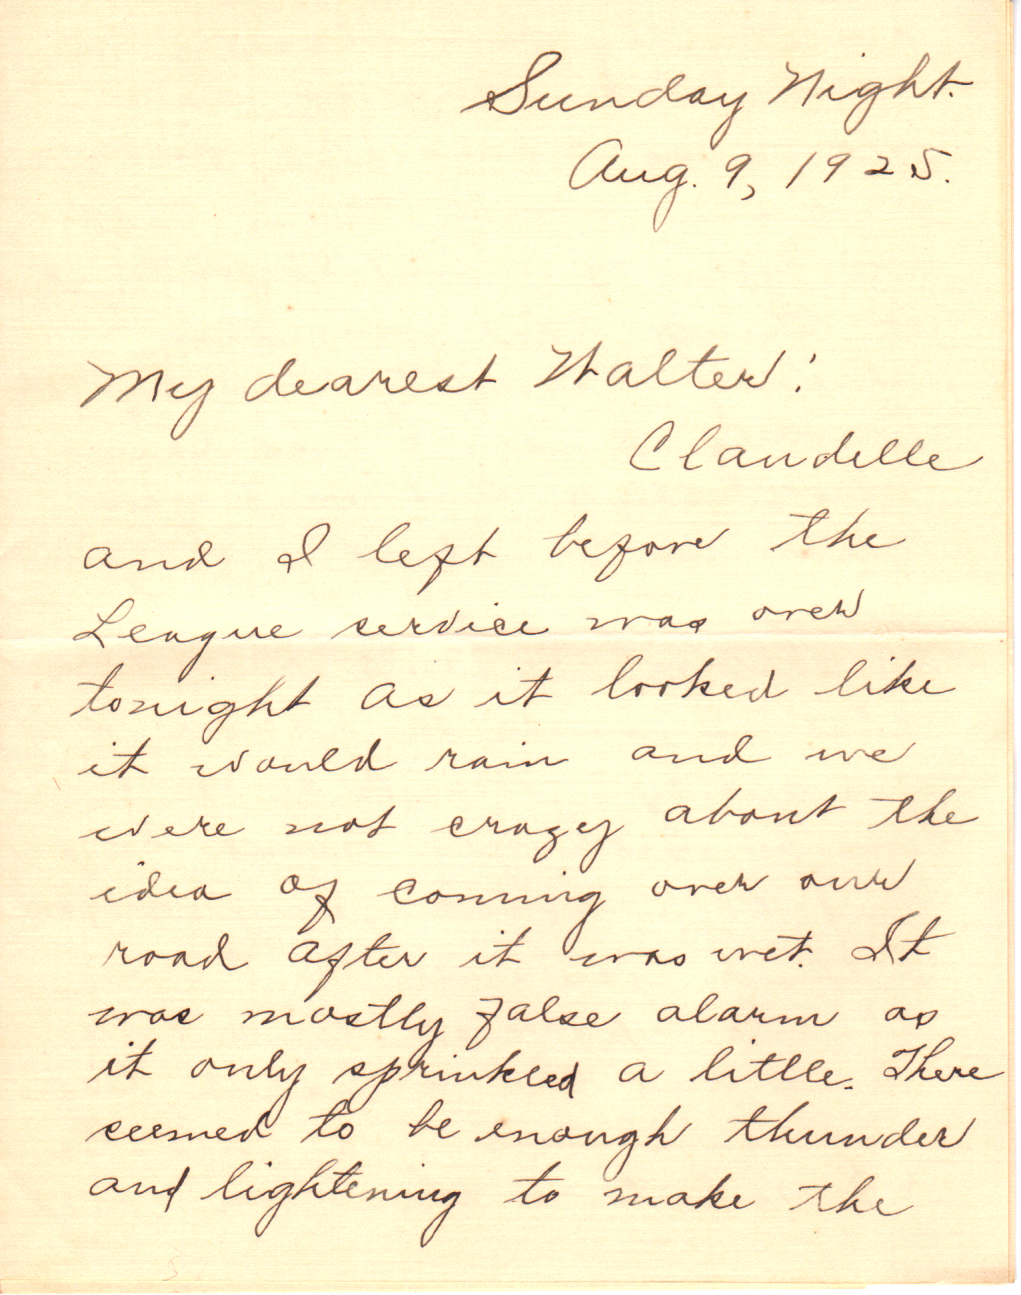 Sunday Night.
Aug. 9, 1925.
My dearest Walter:
Claudelle
and I left before the
League service was over
tonight as it looked like
it would rain and we
were not crazy about the
idea of coming over our
road after it was wet. It
was mostly false alarm as
it only sprinkled a little. There
seemed to be enough thunder
and lightening to make the